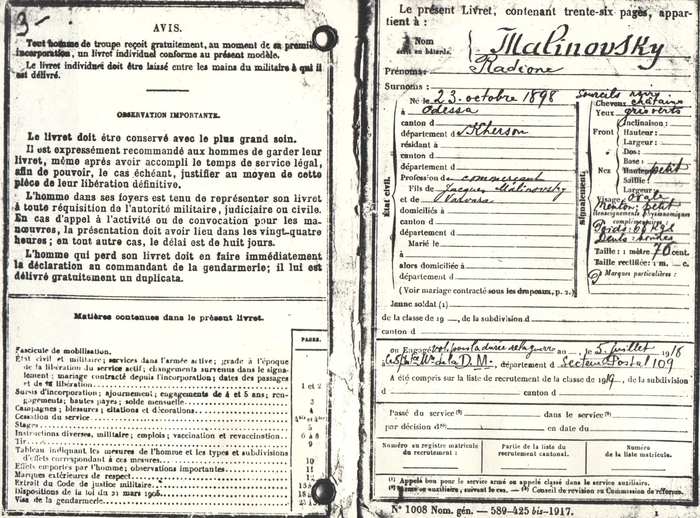 3-
AVIS.
Tout homme de troupe reçoit gratuitement, au moment de sa première
incorporation, un livret individuel conforme au présent modèle.
Le livret individuel doit être laissé entre les mains du militaire à qui il
est délivré.
OBSERVATION IMPORTANTE.
Le livret doit être conservé avec le plus grand soin.
Il est expressément recommandé aux hommes de garder leur
livret, même après avoir accompli le temps de service légal,
afin de pouvoir, le cas échéant, justifier au moyen de cette
pièce de leur libération définitive.
L'homme dans ses foyers est tenu de représenter son livret
à toute réquisition de l'autorité militaire, judiciaire ou civile.
En cas d'appel à l'activité ou de convocation pour les ma-
nœuvres, la présentation doit avoir lieu dans les vingt-quatre
heures; en tout autre cas, le délai est de huit jours.
L'homme qui perd son livret doit en faire immédiatement
la déclaration au commandant de la gendarmerie; il lui est
délivré gratuitement un duplicata.
Matières contenues dans le présent livret.
PAGES.
Fascicule de mobilisation.
État civil et militaire; services dans l'armée active; grade à l'époque
de la libération du service actif; changements survenus dans le signa-
lement; mariage contracté depuis l'incorporation; dates des passages
et de la libération 1 et 2
Sursis d'incorporation; ajournement; engagements de 4 et 5 ans; ren-
gagements; hautes payes; solde mensuelle 3
Campagnes; blessures; citations et décorations 4
Cessation du service
Stages 5
Instructions diverses, militaire; emplois; vaccination et revaccination 6 à 8
Tir 9
Tableau indiquant les mesures de l'homme et les types et subdivisions
d'effets correspondant à ces mesures 10
Effets emportés par l'homme; observations importantes 11
Marques extérieures de respect 12
Extrait du Code de justice militaire
Dispositions de la loi du 21 mars 1905
Visa de la gendarmerie
Le présent Livret, contenant trente-six pages, appar-
tient à :
Nom
écrit en bâtarde. Malinovsky
Prénoms Radione
Surnoms :
État civil.
Né le 23 octobre 1898
à Odessa
canton d
département d Kherson
résidant à
canton d
département d
Profession d commerçant
Fils de Jacques Malinovsky
et de Varvara
domiciliés à
canton d
département d
Marié le
à
alors domiciliée à
département d
(Voir mariage contracté sous les drapeaux, p. 2.)
Signalement.
Sourcils noirs
Cheveux châtains
Yeux gris verts
Front
Inclinaison :
Hauteur :
Largeur :
Nez
Dos :
Base :
Hauteur petit
Saillie
Largeur :
Visage ovale
Menton : petit
Renseignements physionomiques
complémentaires :
Poids : 66 Kgs
Dents : bonnes
Taille : 1 mètre 70 cent.
Taille rectifiée : 1 m. c.
Marques particulières :
Jeune soldat (1)
de la classe de 19 , de la subdivision d
canton d
ou Engagé vol. pour la durée de la guerre le 5 juillet 1916
de la D. M., département d Secteur Postal 109
A été compris sur la liste de recrutement de la classe de 1919, de la subdivision
d canton d
Passé du service (2) dans le service (2)
par décision d (3) en date du
Numéro au registre matricule
du recrutement :
Partie de la liste
du recrutement cantonal.
Numéro
de la liste matricule.
(1) Appelé bon pour le service armé ou appelé classé dans le service auxiliaire.
(2) Armé ou auxiliaire, suivant le cas. — (3) Conseil de revision ou Commission de réforme.
N° 1008 Nom. gén. — 589-425 bis-1917.
1